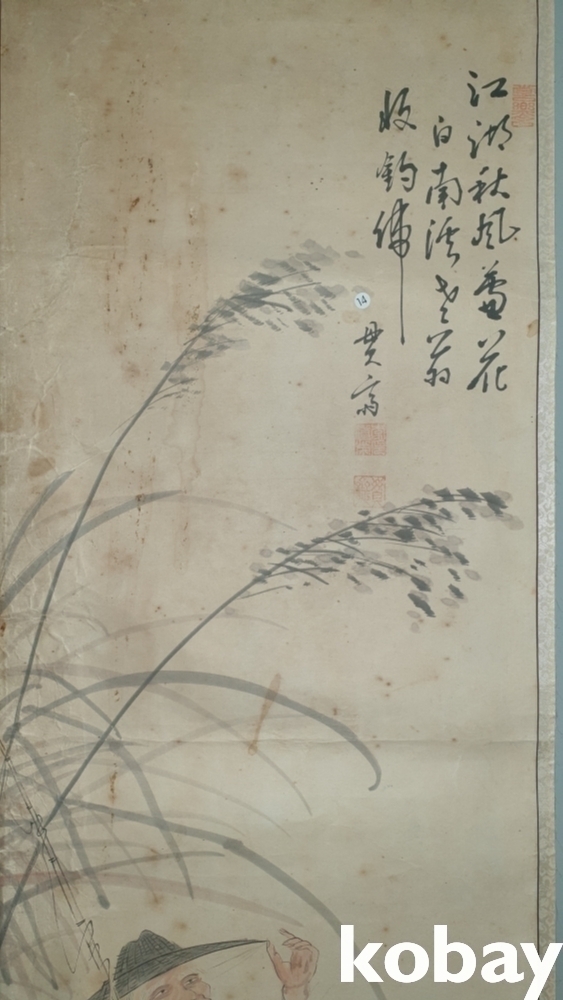 江湖秋風蘆花
白南溪老翁
收釣歸
貫斎
14
kobay